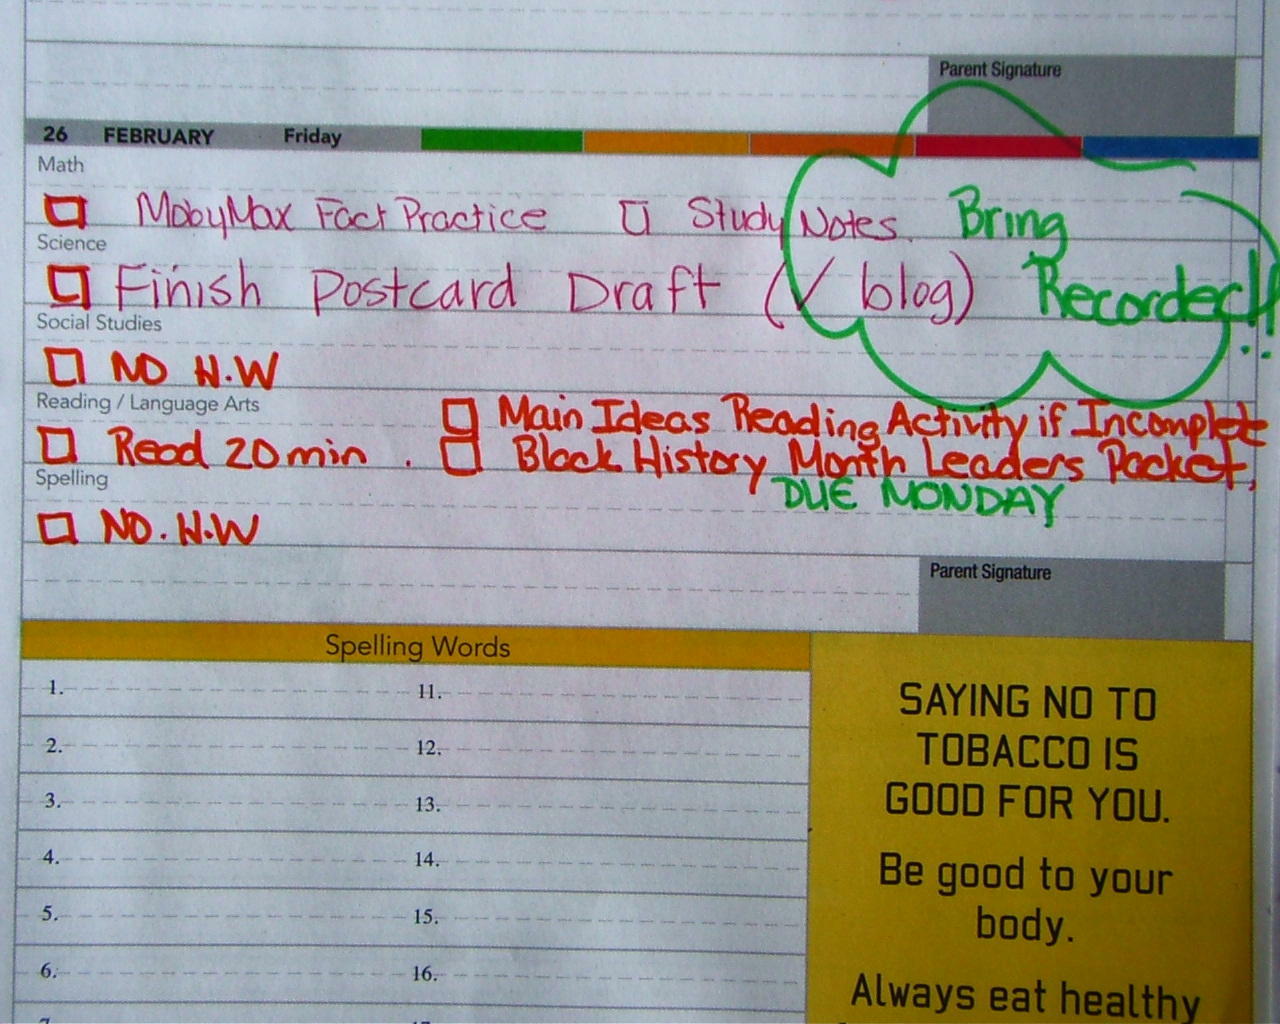 Parent Signature
26 FEBRUARY Friday
Math
MobyMax Fact Practice Study Notes. Bring
Science
Finish Postcard Draft (✓ blog) Recorder!!
Social Studies
NO H.W
Reading / Language Arts
Main Ideas Reading Activity if Incomplete
Read 20 min . Black History Month Leaders Packet,
Spelling
DUE MONDAY
NO. H.W
Parent Signature
Spelling Words
1. 11.
2. 12.
3. 13.
4. 14.
5. 15.
6. 16.
SAYING NO TO
TOBACCO IS
GOOD FOR YOU.
Be good to your
body.
Always eat healthy